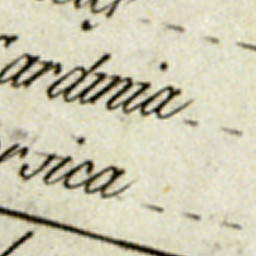 ardinia
rsica